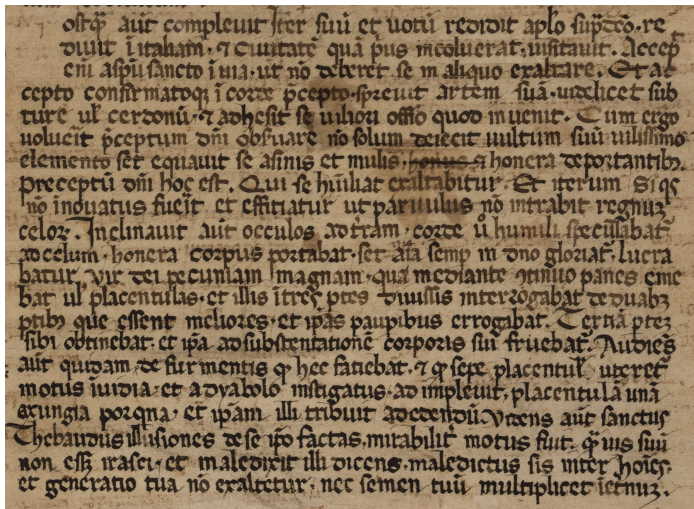 ostq̄ aūt compleuit Iter suū et uotū redidit aplo sup̄dcō. re
diuit ī italiam. ⁊ Ciuitatē quā p̄us incoluerat. uisitauit. Accep
em̄ a sp̄u sancto ī uia. ut nō deberet se in aliquo exaltare. Et ac
cepto confirmatoqꝫ ī corde p̄cepto. spreuit artem suā. uidelicet sub
ture ul̓ cerdonū. ⁊ adhesit se uiliori offitio quod inuenit. Cum ergo
voluerit p̄ceptum dn̄i obseruare nō solum deiecit uultum suū uilissimo
elemento set equauit se asinis et mulis. honus ⁊ honera deportantibꝫ.
Preceptū dn̄i hoc est. Qui se hūiliat exaltabitur. Et iterum Si qs
nō īnouatus fuerit et effitiatur ut paruulus nō intrabit regnuꝫ
celoꝝ. Inclinauit aūt occulos ad t̄ram. corde ū humili speculabat᷑
ad celum. honera corpus portabat. set aīa semp in dn̄o gloriat᷑. lucra
batur. Vir dei pecuniam magnam. qua mediante ꝯtinuo panes eme
bat ul̓ placentulas. et illis ī tres ptes diuisis interrogabat de duabꝫ
ptibꝫ que essent meliores. et ip̄as paupibus errogabat. Tertiā pteꝫ
sibi obtinebat. et ip̄a ad substentationē corporis sui fruebat᷑. Audiēs
aūt quidam de furmentis ꝙ hec fatiebat. ⁊ ꝙ sepe placentul̓. uteret᷑
motus īuidia. et a dyabolo instigatus. adimpleuit. placentulā unā
axungia porqna. et ip̄am illi tribuit ad edendū. Videns aūt sanctus
Thebaudus illusiones de se ip̄o factas. mirabilit̄ motus fuit. q̄uis suū
non esset irasci. et maledixit illi dicens. maledictus sis inter hoīes.
et generatio tua nō exaltetur. nec semen tuū multiplicet īeternuꝫ.